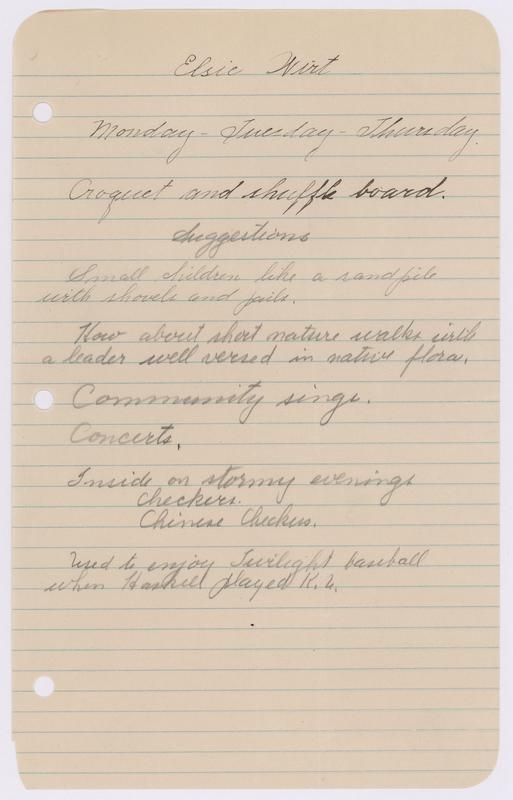 Elsie Wirt
Monday - Tuesday - Thursday.
Croquet and shuffle board.
Suggestions
Small children like a sandpile
with shovels and pails.
How about short nature walks with
a leader well versed in native flora.
Community sings.
Concerts.
Inside on stormy evenings
Checkers.
Chinese Checkers.
Used to enjoy Twilight baseball
when Haskell played K.U.